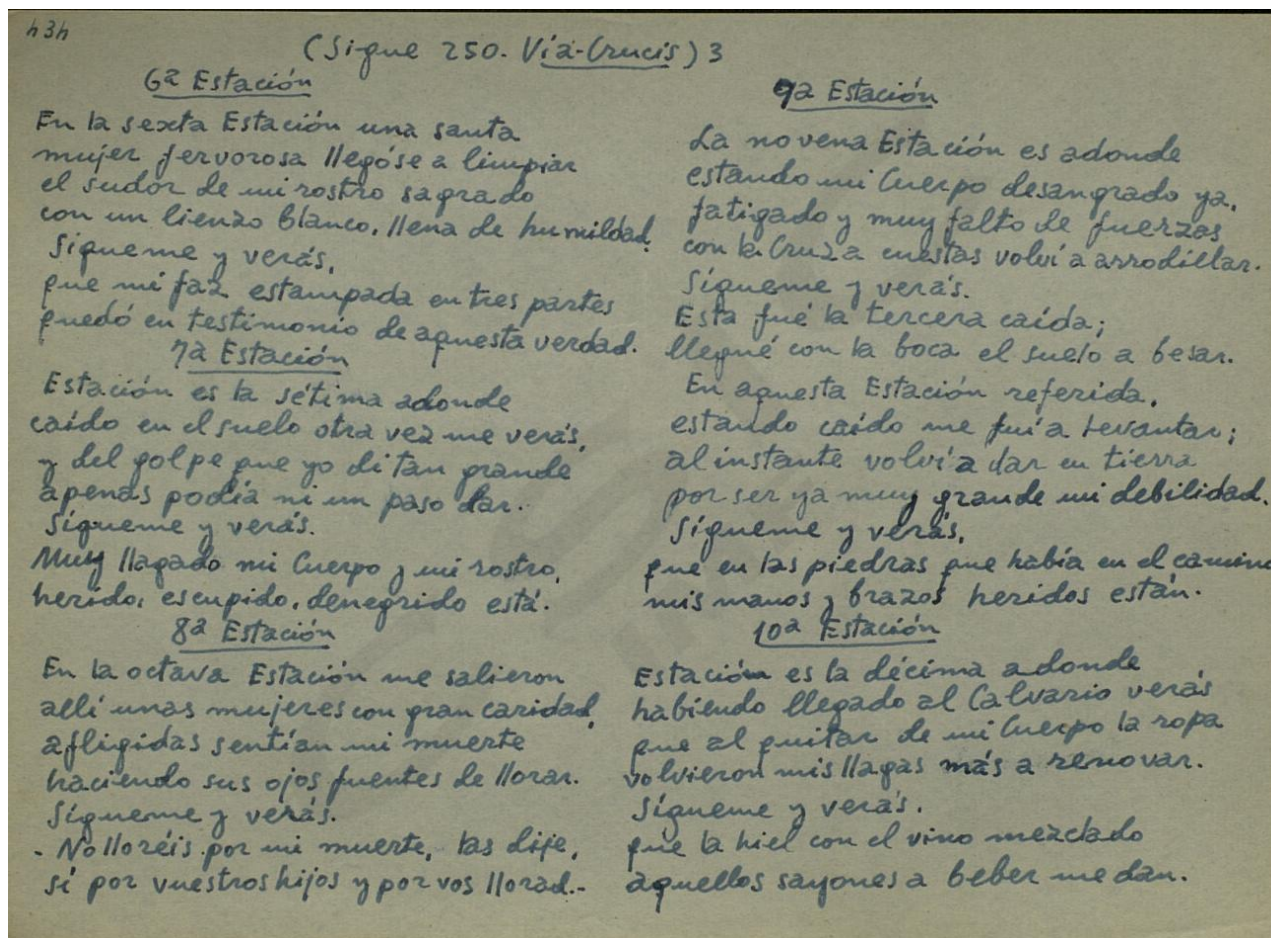 434
(Sigue 250. Vía-Crucis) 3
6ª Estación
En la sexta Estación una santa
mujer fervorosa llegóse a limpiar
el sudor de mi rostro sagrado
con un lienzo blanco, llena de humildad.
Sígueme y verás,
que mi faz estampada en tres partes
quedó en testimonio de aquesta verdad.
7ª Estación
Estación es la sétima adonde
caído en el suelo otra vez me verás,
y del golpe que yo di tan grande
apenas podía ni un paso dar.
Sígueme y verás.
Muy llagado mi Cuerpo y mi rostro,
herido, escupido, denegrido está.
8ª Estación
En la octava Estación me salieron
allí unas mujeres con gran caridad,
afligidas sentían mi muerte
haciendo sus ojos fuentes de llorar.
Sígueme y verás.
- No lloréis por mi muerte, las dije,
sí por vuestros hijos y por vos llorad.-
9ª Estación
La novena Estación es adonde
estando mi Cuerpo desangrado ya,
fatigado y muy falto de fuerzas
con la Cruz a cuestas volví a arrodillar.
Sígueme y verás.
Esta fué la tercera caída;
llegué con la boca el suelo a besar.
En aquesta Estación referida,
estando caído me fuí a levantar;
al instante volví a dar en tierra
por ser ya muy grande mi debilidad.
Sígueme y verás,
que en las piedras que había en el camino
mis manos y brazos heridos están.
10ª Estación
Estación es la décima adonde
habiendo llegado al Calvario verás
que al quitar de mi Cuerpo la ropa
volvieron mis llagas más a renovar.
Sígueme y verás.
que la hiel con el vino mezclado
aquellos sayones a beber me dan.